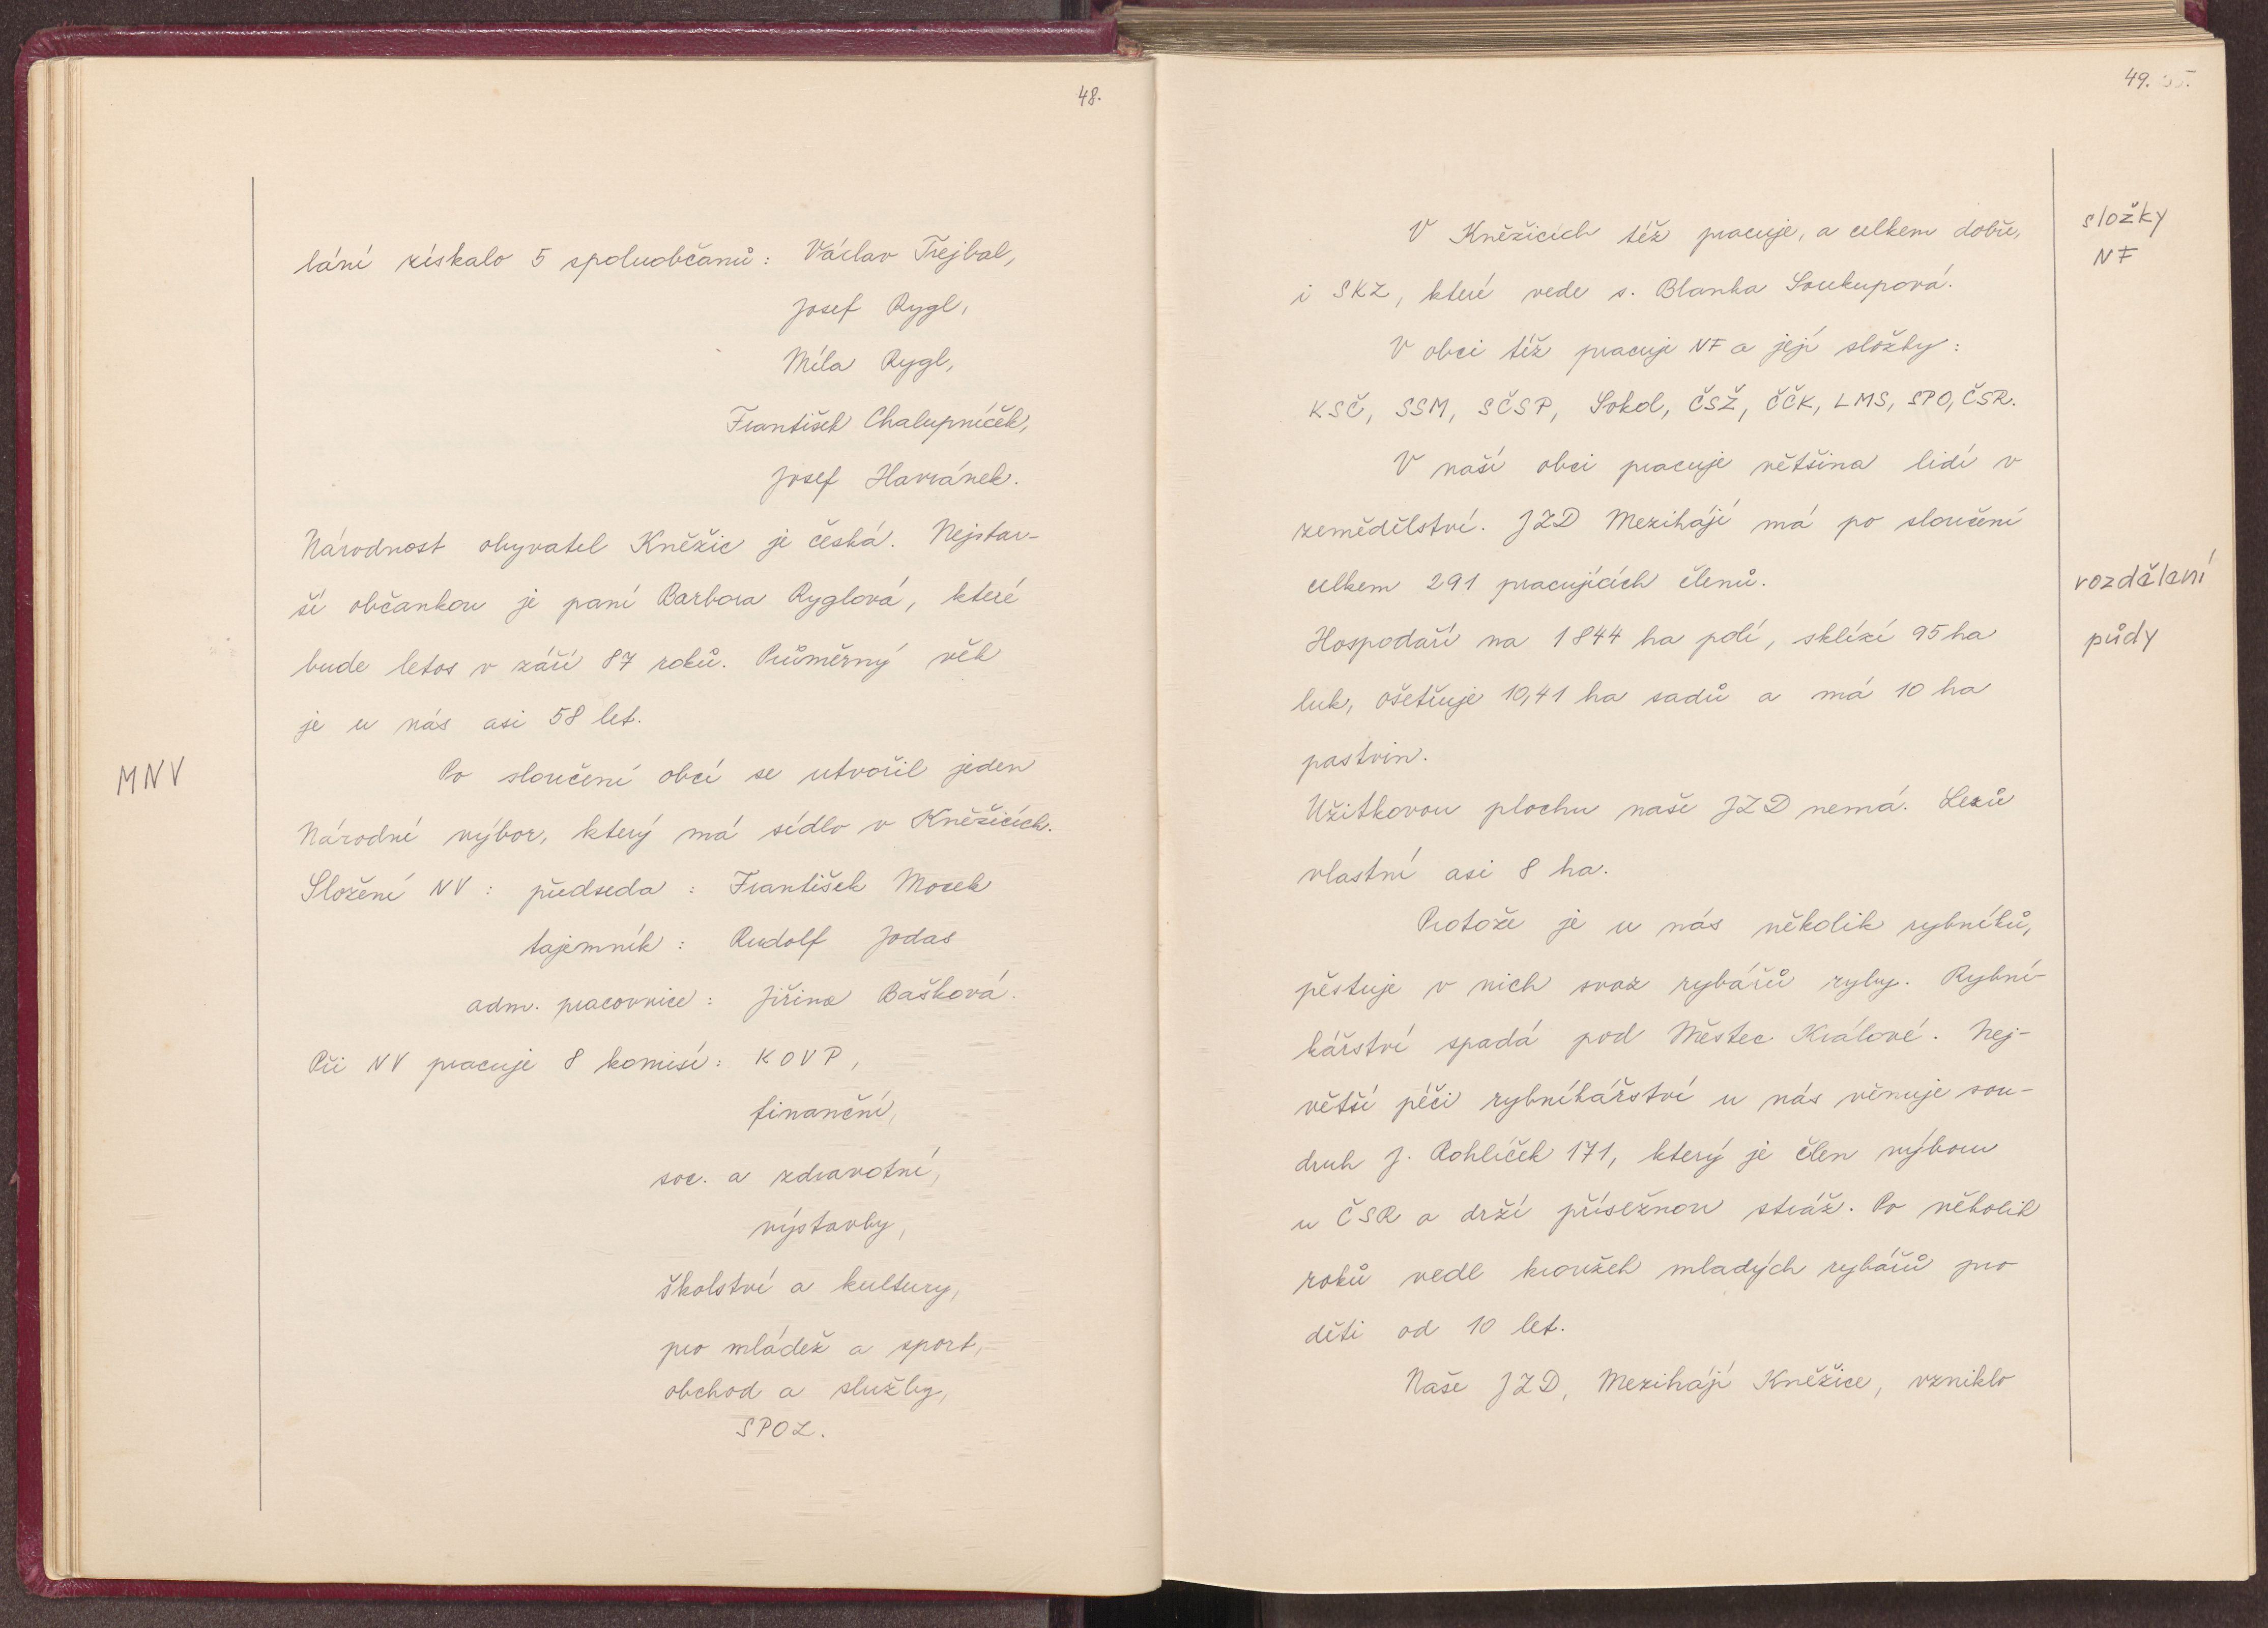 48.
lání získalo 5 spoluobčanů: Václav Trejbal,
Josef Rygl,
Míla Rygl,
František Chalupníček,
Josef Havránek.
Národnost obyvatel Kněžic je česká. Nejstar-
ší občankou je paní Barbora Ryglová, které
bude letos v září 87 roků. Průměrný věk
je u nás asi 58 let.
MNV
Po sloučení obcí se utvořil jeden
Národní výbor, který má sídlo v Kněžicích.
Složení NV: předseda: František Mocek
tajemník: Rudolf Jodas
adm. pracovnice: Jiřina Bašková.
Při NV pracuje 8 komisí: KOVP,
finanční,
soc. a zdravotní,
výstavby,
školství a kultury,
pro mládež a sport,
obchod a služby,
SPOZ.
49.
složky
NF
V Kněžicích též pracuje, a celkem dobře,
i SKZ, které vede s. Blanka Soukupová.
V obci též pracuje NF a její složky:
KSČ, SSM, SČSP, Sokol, ČSŽ, ČČK, LMS, SPO, ČSR.
V naší obci pracuje většina lidí v
zemědělství. JZD Mezihájí má po sloučení
celkem 291 pracujících členů.
vozdělaní
půdy
Hospodaří na 1844 ha polí, sklízí 95 ha
luk, ošetřuje 10,41 ha sadů a má 10 ha
pastvin.
Užitkovou plochu naše JZD nemá. Lesů
vlastní asi 8 ha.
Protože je u nás několik rybníků,
pěstuje v nich svaz rybářů ryby. Rybní-
kářství spadá pod Městec Králové. Nej-
větší péči rybníkářství u nás věnuje sou-
druh J. Rohlíček 171, který je člen výboru
u ČSR a drží přísežnou stráž. Po několik
roků vedl kroužek mladých rybářů pro
děti od 10 let.
Naše JZD, Mezihájí Kněžice, vzniklo